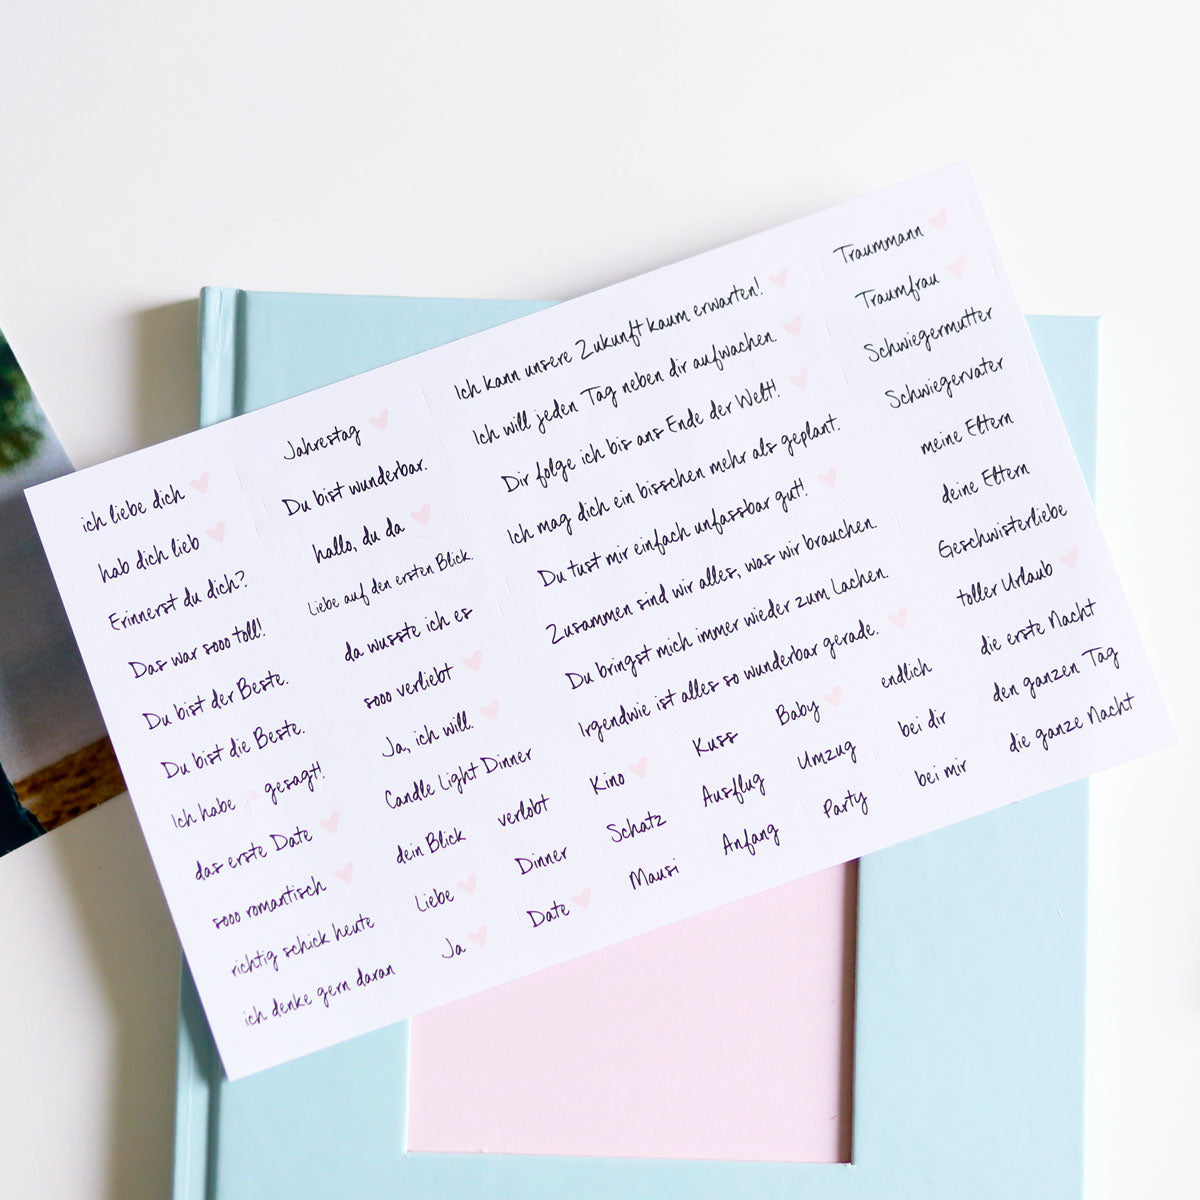 ich liebe dich
hab dich lieb
Erinnerst du dich?
Das war sooo toll!
Du bist der Beste.
Du bist die Beste.
Ich habe ja gesagt!
das erste Date
sooo romantisch
richtig schick heute
ich denke gern daran
Jahrestag
Du bist wunderbar.
hallo, du da
Liebe auf den ersten Blick.
da wusste ich es
sooo verliebt
Ja, ich will.
Candle Light Dinner
dein Blick
Liebe
Ja
verlobt
Dinner
Date
Ich kann unsere Zukunft kaum erwarten!
Ich will jeden Tag neben dir aufwachen.
Dir folge ich bis ans Ende der Welt!
Ich mag dich ein bisschen mehr als geplant.
Du tust mir einfach unfassbar gut!
Zusammen sind wir alles, was wir brauchen.
Du bringst mich immer wieder zum Lachen.
Irgendwie ist alles so wunderbar gerade.
Kino
Schatz
Mausi
Kuss
Ausflug
Anfang
Baby
Umzug
Party
endlich
bei dir
bei mir
Traummann
Traumfrau
Schwiegermutter
Schwiegervater
meine Eltern
deine Eltern
Geschwisterliebe
toller Urlaub
die erste Nacht
den ganzen Tag
die ganze Nacht